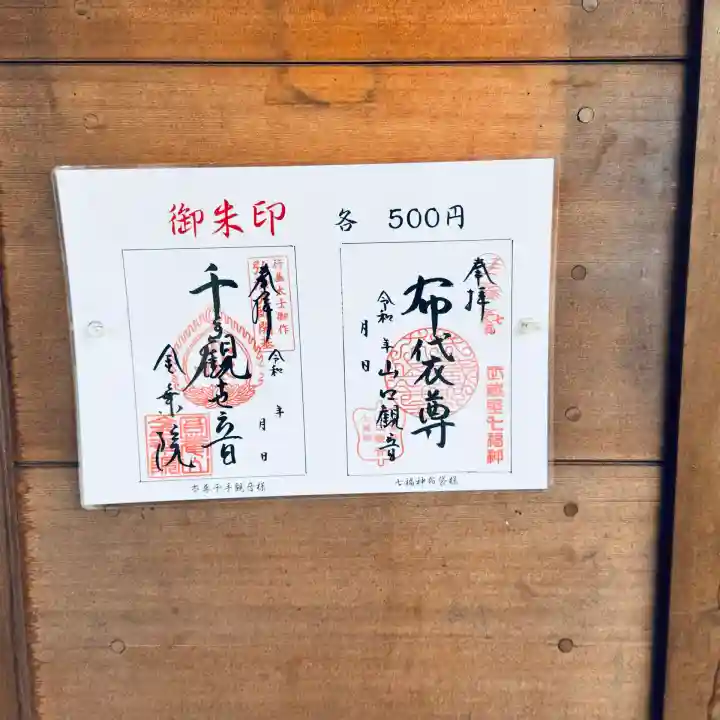 御朱印 各 500円
奉拝
千手観世音
令和 年 月 日
金乗院
行基大士御作
本尊千手観音様
奉拝
布袋尊
令和 年 月 日
山口観音
西武蔵野七福神
七福神布袋様